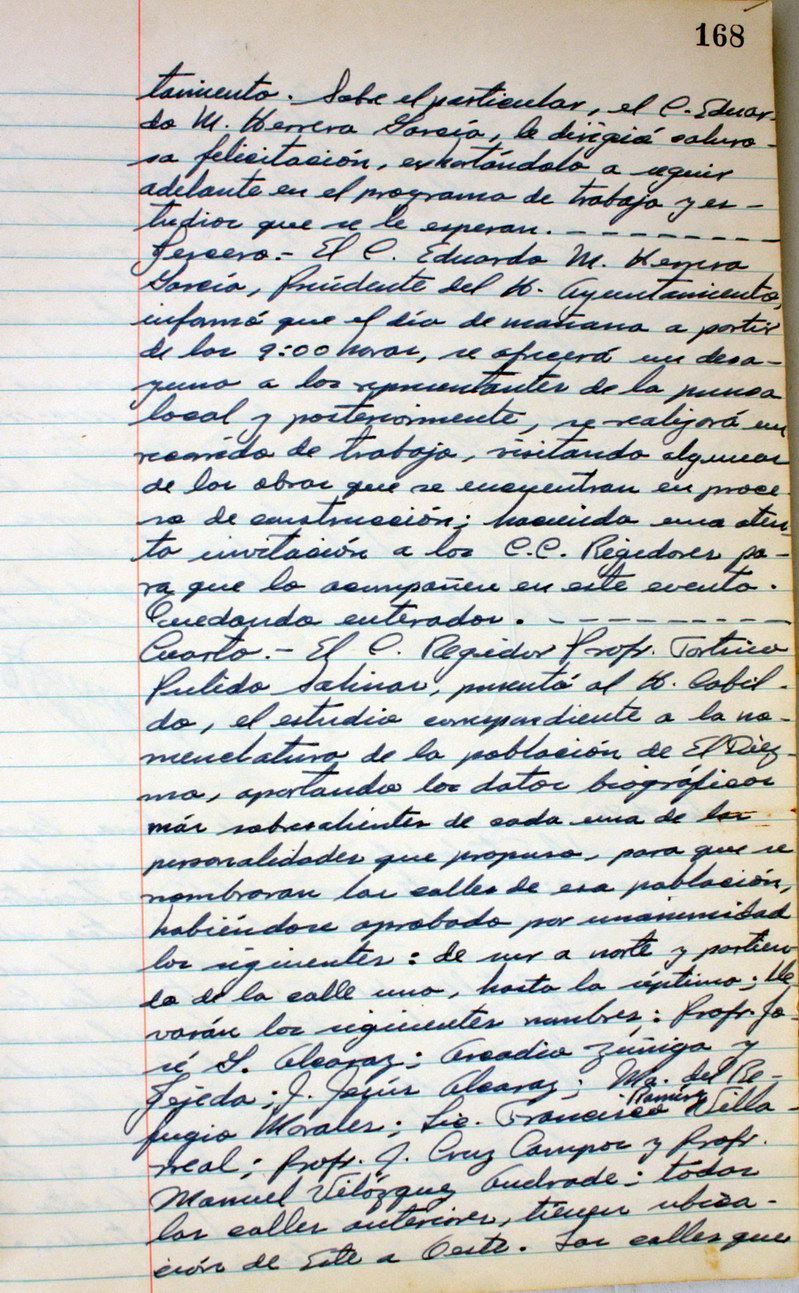 168
tamiento. Sobre el particular, el C. Eduar-
do M. Herrera García, le dirigió caluro-
sa felicitación, exhortándolo a seguir
adelante en el programa de trabajo y es-
tudios que se le esperan. - - - - - - - -
Tercero.- El C. Eduardo M. Herrera
García, Presidente del H. Ayuntamiento,
informó que el día de mañana a partir
de las 9:00 horas, se ofrecerá un desa-
yuno a los representantes de la prensa
local y posteriormente, se realizará un
recorrido de trabajo, visitando algunas
de las obras que se encuentran en proce-
so de construcción; haciendo una aten-
ta invitación a los C.C. Regidores pa-
ra que lo acompañen en este evento.
Quedando enterados. - - - - - - - - -
Cuarto.- El C. Regidor Profr.
Pulido Salinas, presentó al H. Cabil-
do, el estudio correspondiente a la no-
menclatura de la población de El Diez-
mo, aportando los datos biográficos
más sobresalientes de cada una de las
personalidades que propuso, para que se
nombraran las calles de esa población,
habiéndose aprobado por unanimidad
los siguientes: de sur a norte y partien-
do de la calle uno, hasta la séptima; lle
varán los siguientes nombres: Profr. Jo-
sé S. Alcaraz; Arcadio Zúñiga y
Tejeda; J. Jesús Alcaraz; Ma. del Re-
fugio Morales; Lic. Francisco Ramírez Villa-
rreal; Profr. J. Cruz Campos y Profr.
Manuel Velázquez Andrade; todas
las calles anteriores, tienen ubica-
ción de Este a Oeste. Las calles que